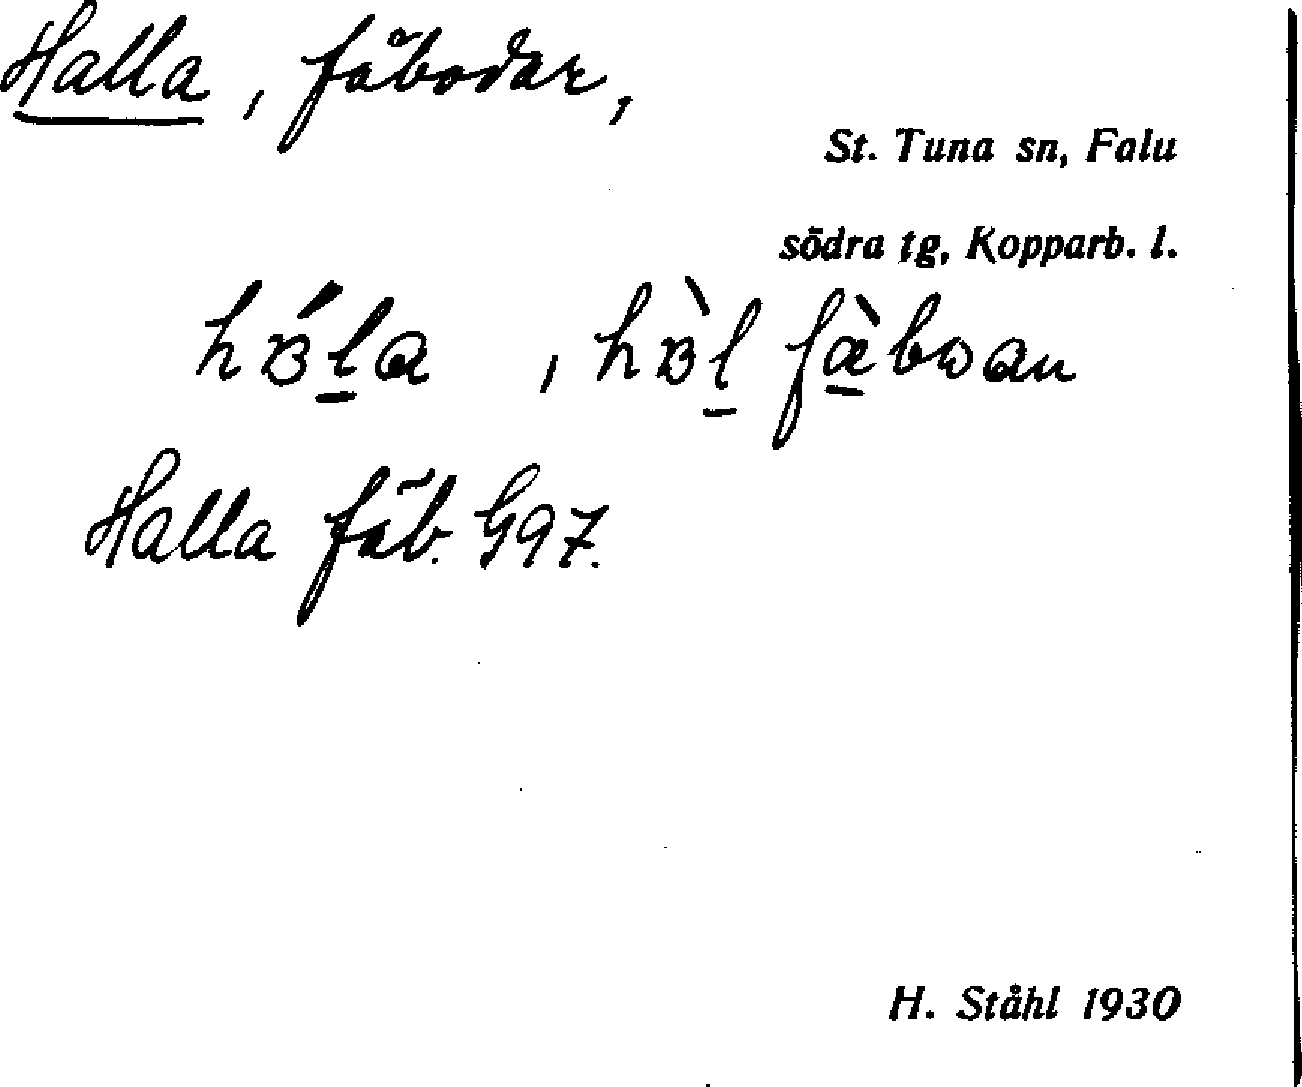 Halla, fäbodar,
St. Tuna sn, Falu
södra tg, Kopparb. l.
hɞ́l̲a, hɞ̀l̲ fæ̲̀bωan
Halla fäb. G97.
H. Ståhl 1930